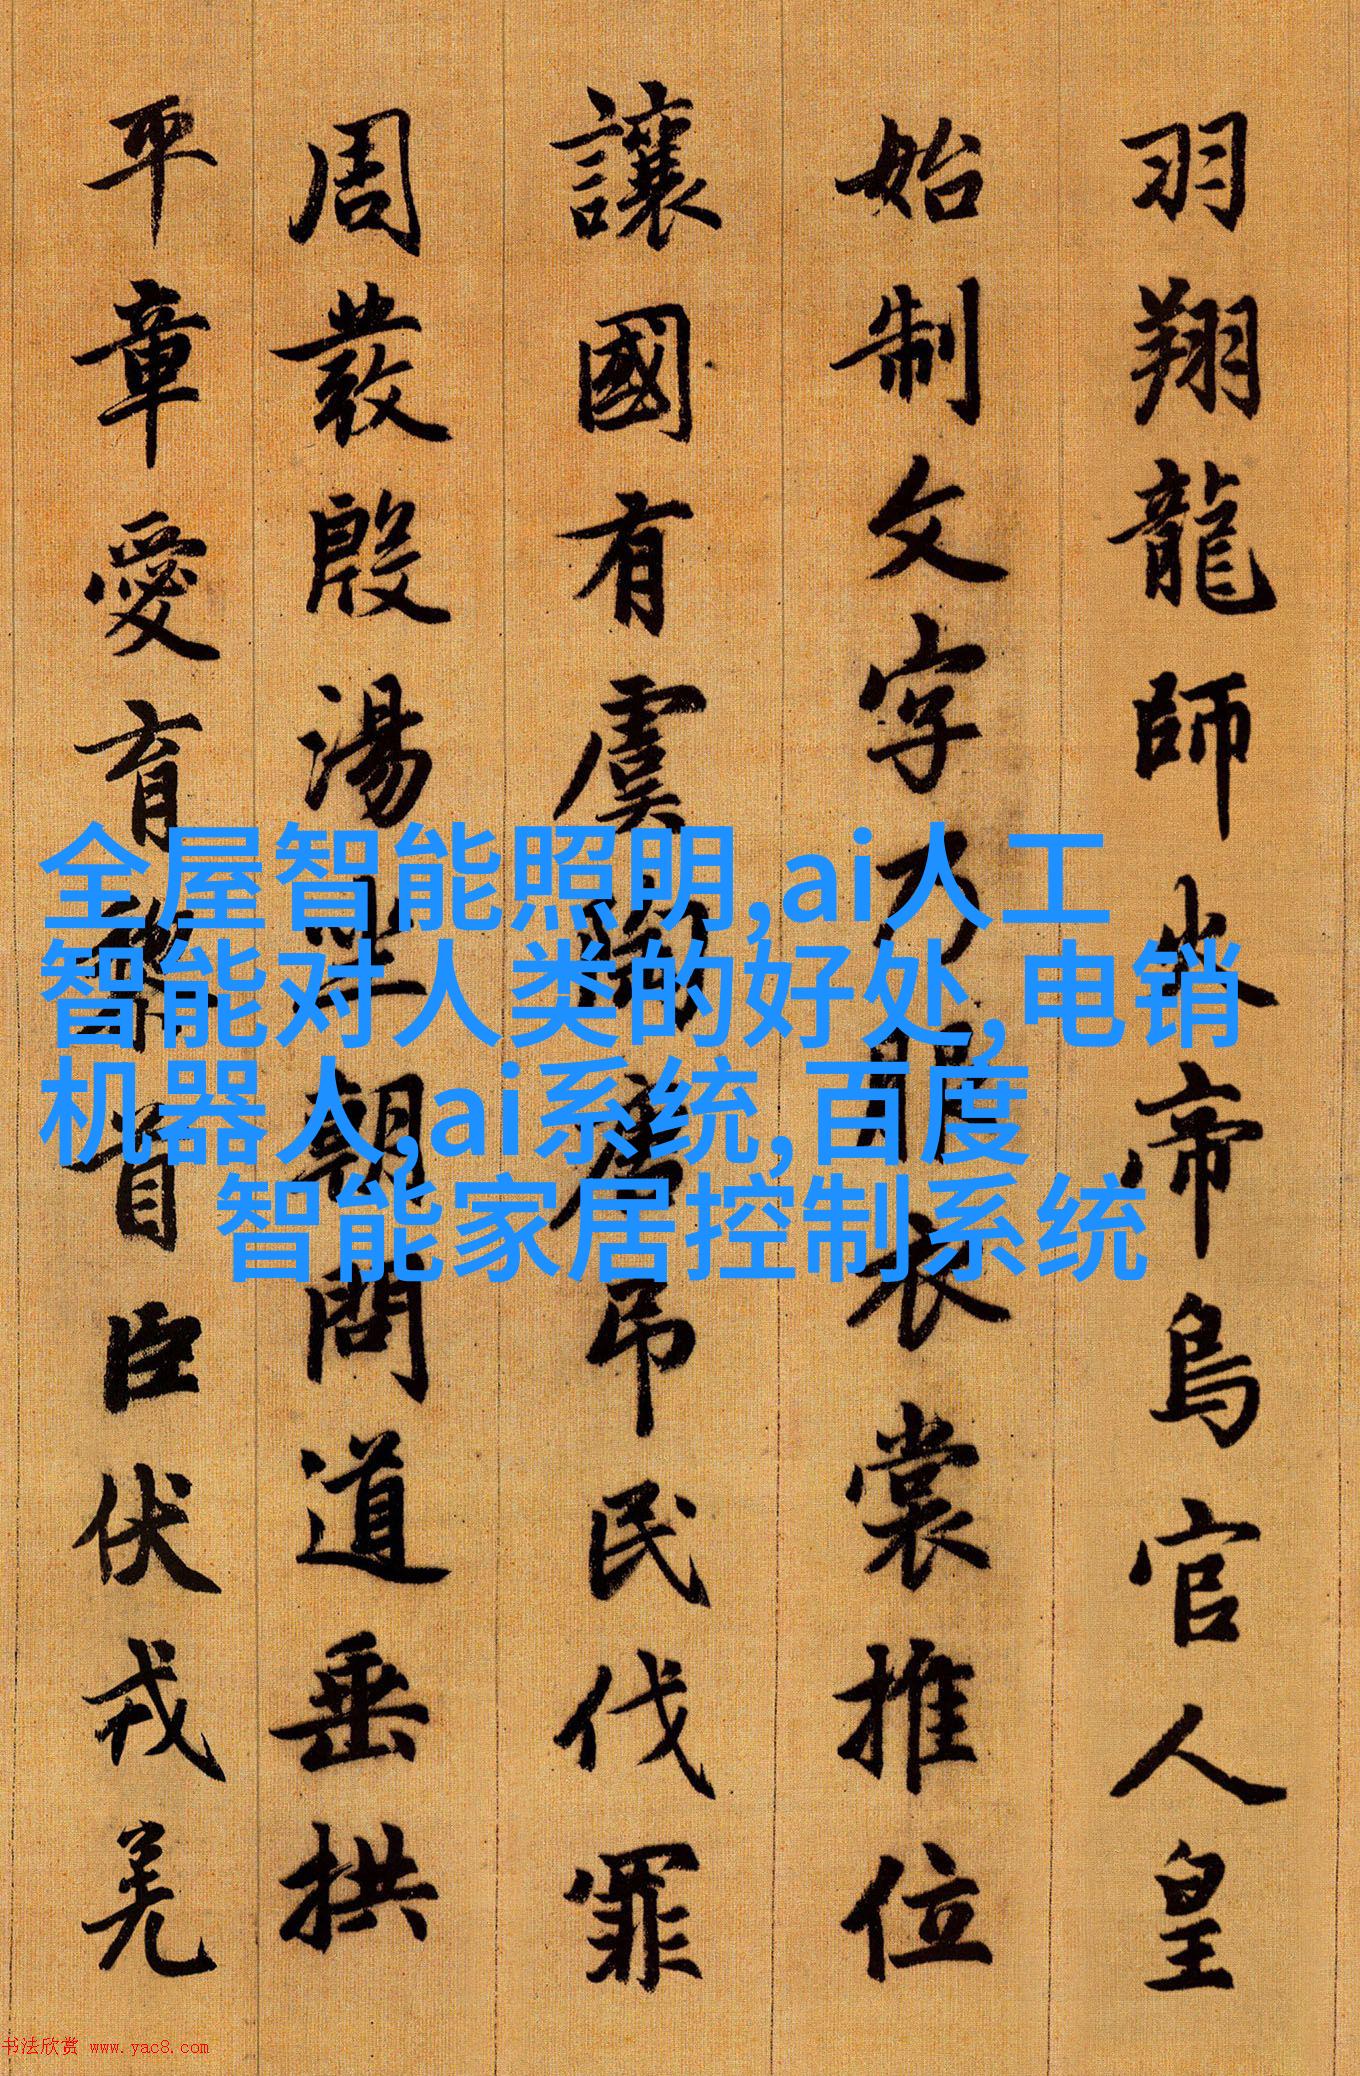 羽翔龍師火帝鳥官人皇
始制文字乃服衣裳推位
讓國有虞陶唐吊民伐罪
周發殷湯坐朝問道垂拱
平章愛育黎首臣伏戎羌
全屋智能照明,ai人工
智能对人类的好处,电销
机器人,ai系统,百度
智能家居控制系统
书法欣赏 www.yac8.com